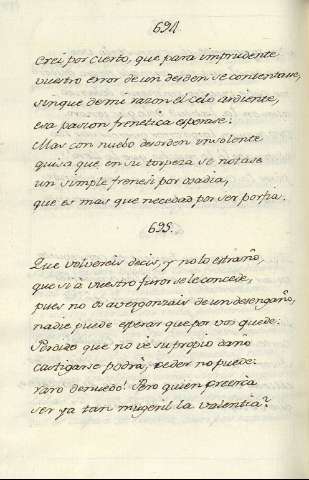 694.
Crei por cierto, que para imprudente
vuestro error de un desden se contentase,
sin que de mi razon el celo ardiente,
esa pasion frenetica esperase:
Mas con nuebo desorden insolente
quisa que en su torpeza se notase
un simple frenesi por osadia,
que es mas que necedad por ser porfia.
695.
Que volvereis decis, y no lo estraño,
que si à vuestro furor se le concede,
pues no os avergonzais de un desengaño,
nadie puede esperar que por vos quede:
que no vè su propio daño
castigarse podrà, ceder no puede:
raro denuedo! Pero quien creeria
ser ya tan mugeril la valentia?